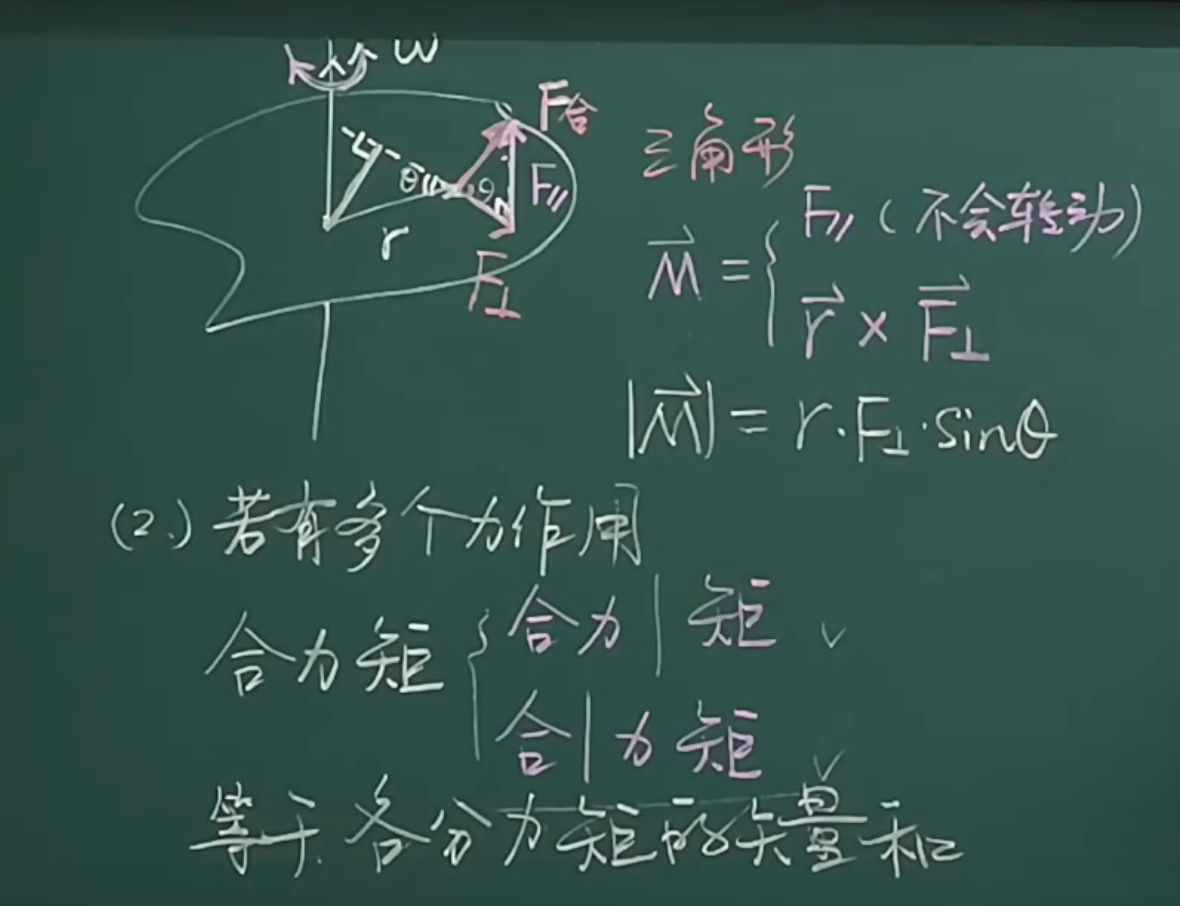 ω
F合
θ
θ
F∥
r
F⊥
三角形
M⃗ = { F∥ (不会转动)
r⃗ × F⃗⊥
|M⃗| = r·F⊥·sinθ
(2.) 若有多个力作用
合力矩 { 合力 | 矩 ✓
合 | 力矩 ✓
等于各分力矩的矢量和